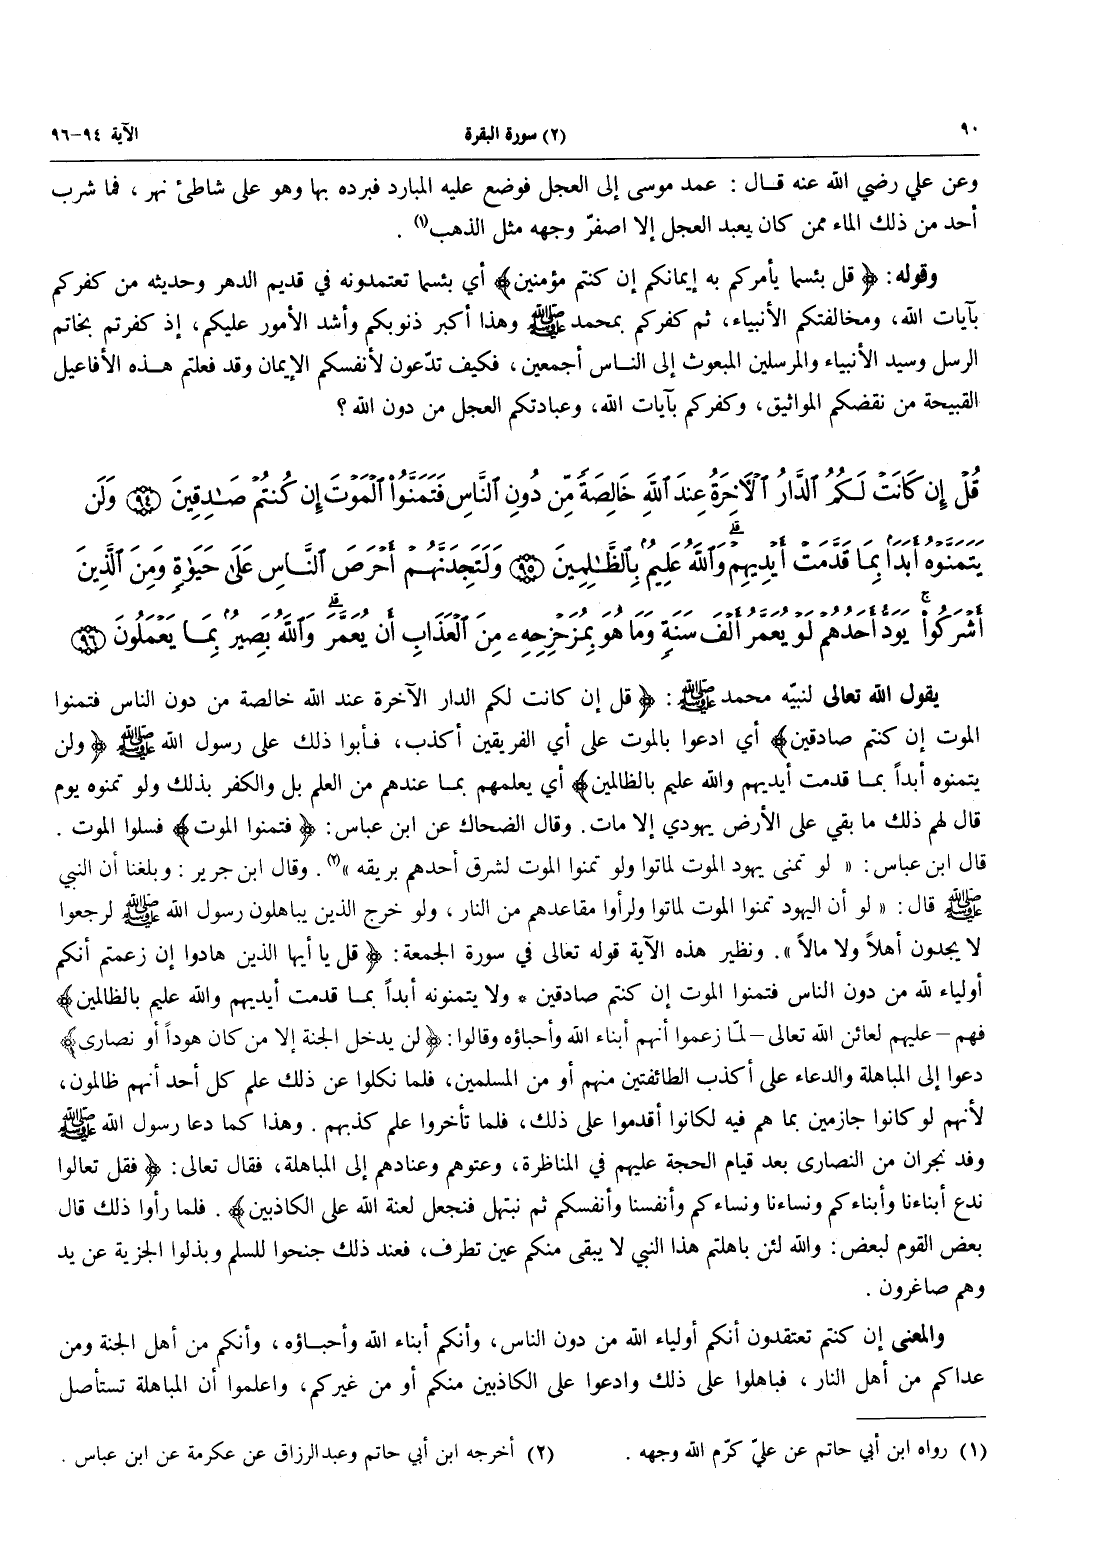 ٩٠ (٢) سورة البقرة الآية ٩٤-٩٦
وعن علي رضي الله عنه قـال : عمد موسى إلى العجل فوضع عليه المبارد فبرده بها وهو على شاطئ نهر ، فما شرب
أحد من ذلك الماء ممن كان يعبد العجل إلا اصفرّ وجهه مثل الذهب(١) .
وقوله : ﴿ قل بئسما يأمركم به إيمانكم إن كنتم مؤمنين﴾ أي بئسما تعتمدونه في قديم الدهر وحديثه من كفركم
بآيات الله، ومخالفتكم الأنبياء، ثم كفركم بمحمد ﷺ وهذا أكبر ذنوبكم وأشد الأمور عليكم، إذ كفرتم بخاتم
الرسل وسيد الأنبياء والمرسلين المبعوث إلى النـاس أجمعين ، فكيف تدّعون لأنفسكم الإيمان وقد فعلتم هـذه الأفاعيل
القبيحة من نقضكم المواثيق، وكفركم بآيات الله، وعبادتكم العجل من دون الله ؟
قُلْ إِن كَانَتْ لَكُمُ ٱلدَّارُ ٱلْآخِرَةُ عِندَ ٱللَّهِ خَالِصَةً مِّن دُونِ ٱلنَّاسِ فَتَمَنَّوُا۟ ٱلْمَوْتَ إِن كُنتُمْ صَـٰدِقِينَ ﴿٩٤﴾ وَلَن
يَتَمَنَّوْهُ أَبَدًۢا بِمَا قَدَّمَتْ أَيْدِيهِمْ ۗ وَٱللَّهُ عَلِيمٌۢ بِٱلظَّـٰلِمِينَ ﴿٩٥﴾ وَلَتَجِدَنَّهُمْ أَحْرَصَ ٱلنَّاسِ عَلَىٰ حَيَوٰةٍ وَمِنَ ٱلَّذِينَ
أَشْرَكُوا۟ ۚ يَوَدُّ أَحَدُهُمْ لَوْ يُعَمَّرُ أَلْفَ سَنَةٍ وَمَا هُوَ بِمُزَحْزِحِهِۦ مِنَ ٱلْعَذَابِ أَن يُعَمَّرَ ۗ وَٱللَّهُ بَصِيرٌۢ بِمَا يَعْمَلُونَ ﴿٩٦﴾
يقول الله تعالى لنبيّه محمد ﷺ : ﴿ قل إن كانت لكم الدار الآخرة عند الله خالصة من دون الناس فتمنوا
الموت إن كنتم صادقين﴾ أي ادعوا بالموت على أي الفريقين أكذب، فـأبوا ذلك على رسول الله ﷺ ﴿ ولن
يتمنوه أبداً بمـا قدمت أيديهم والله عليم بالظالمين﴾ أي يعلمهم بمـا عندهم من العلم بل والكفر بذلك ولو تمنوه يوم
قال لهم ذلك ما بقي على الأرض يهودي إلا مات. وقال الضحاك عن ابن عباس: ﴿ فتمنوا الموت﴾ فسلوا الموت .
قال ابن عباس: « لو تمنى يهود الموت لماتوا ولو تمنوا الموت لشرق أحدهم بريقه »(٢) . وقال ابن جرير : وبلغنا أن النبي
ﷺ قال: « لو أن اليهود تمنوا الموت لماتوا ولرأوا مقاعدهم من النار ، ولو خرج الذين يباهلون رسول الله ﷺ لرجعوا
لا يجدون أهلاً ولا مالاً ». ونظير هذه الآية قوله تعالى في سورة الجمعة: ﴿ قل يا أيها الذين هادوا إن زعمتم أنكم
أولياء لله من دون الناس فتمنوا الموت إن كنتم صادقين * ولا يتمنونه أبداً بمـا قدمت أيديهم والله عليم بالظالمين﴾
فهم – عليهم لعائن الله تعالى – لمّـا زعموا أنهم أبناء الله وأحباؤه وقالوا : ﴿ لن يدخل الجنة إلا من كان هوداً أو نصارى﴾
دعوا إلى المباهلة والدعاء على أكذب الطائفتين منهم أو من المسلمين، فلما نكلوا عن ذلك علم كل أحد أنهم ظالمون،
لأنهم لو كانوا جازمين بما هم فيه لكانوا أقدموا على ذلك، فلما تأخروا علم كذبهم . وهذا كما دعا رسول الله ﷺ
وفد نجران من النصارى بعد قيام الحجة عليهم في المناظرة، وعتوهم وعنادهم إلى المباهلة، فقال تعالى: ﴿ فقل تعالوا
ندع أبناءنا وأبناءكم ونساءنا ونساءكم وأنفسنا وأنفسكم ثم نبتهل فنجعل لعنة الله على الكاذبين﴾ . فلما رأوا ذلك قال
بعض القوم لبعض: والله لئن باهلتم هذا النبي لا يبقى منكم عين تطرف، فعند ذلك جنحوا للسلم وبذلوا الجزية عن يد
وهم صاغرون .
والمعنى إن كنتم تعتقدون أنكم أولياء الله من دون الناس، وأنكم أبناء الله وأحبـاؤه ، وأنكم من أهل الجنة ومن
عداكم من أهل النار ، فباهلوا على ذلك وادعوا على الكاذبين منكم أو من غيركم، واعلموا أن المباهلة تستأصل
(١) رواه ابن أبي حاتم عن عليّ كرّم الله وجهه . (٢) أخرجه ابن أبي حاتم وعبدالرزاق عن عكرمة عن ابن عباس .